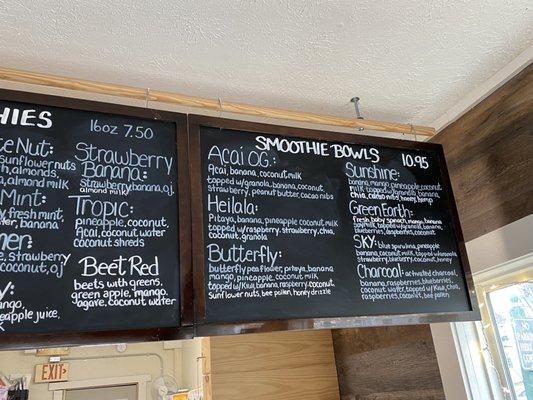 HIES
16oz 7.50
Strawberry
Banana:
Strawberry banana, oj,
almond milk
Tropic:
pineapple, coconut,
Acai, coconut water
coconut shreds
Beet Red
beets with greens,
green apple, mango,
agave, coconut water
sunflower nuts
almonds,
almond milk
Mint:
fresh mint,
banana
strawberry
coconut, oj
mango,
apple juice
SMOOTHIE BOWLS 10.95
Acai OG:
Acai, banana, coconut milk
topped w/granola, banana, coconut,
strawberry, peanut butter, cacao nibs
Heilala:
Pitaya, banana, pineapple coconut milk
topped w/granola, strawberry, chia,
coconut, granola
Butterfly:
butterfly pea flower, pitaya, banana
mango, pineapple, coconut milk
topped w/Kiwi, banana, raspberry, coconut,
sunflower nuts, bee pollen, honey drizzle
Sunshine:
banana, mango, pineapple, coconut
topped w/granola, banana,
chia, cacao nibs, honey, hemp
Green Earth:
fresh baby spinach, mango, banana
blueberries, raspberries, coconut
SKY: blue spirulina, pineapple
banana, coconut milk, topped w/granola,
strawberry, blueberry, coconut
Charcoal: activated charcoal,
banana, raspberries, blueberries
coconut water, topped w/Kiwi, chia,
raspberries, coconut, bee pollen
EXIT